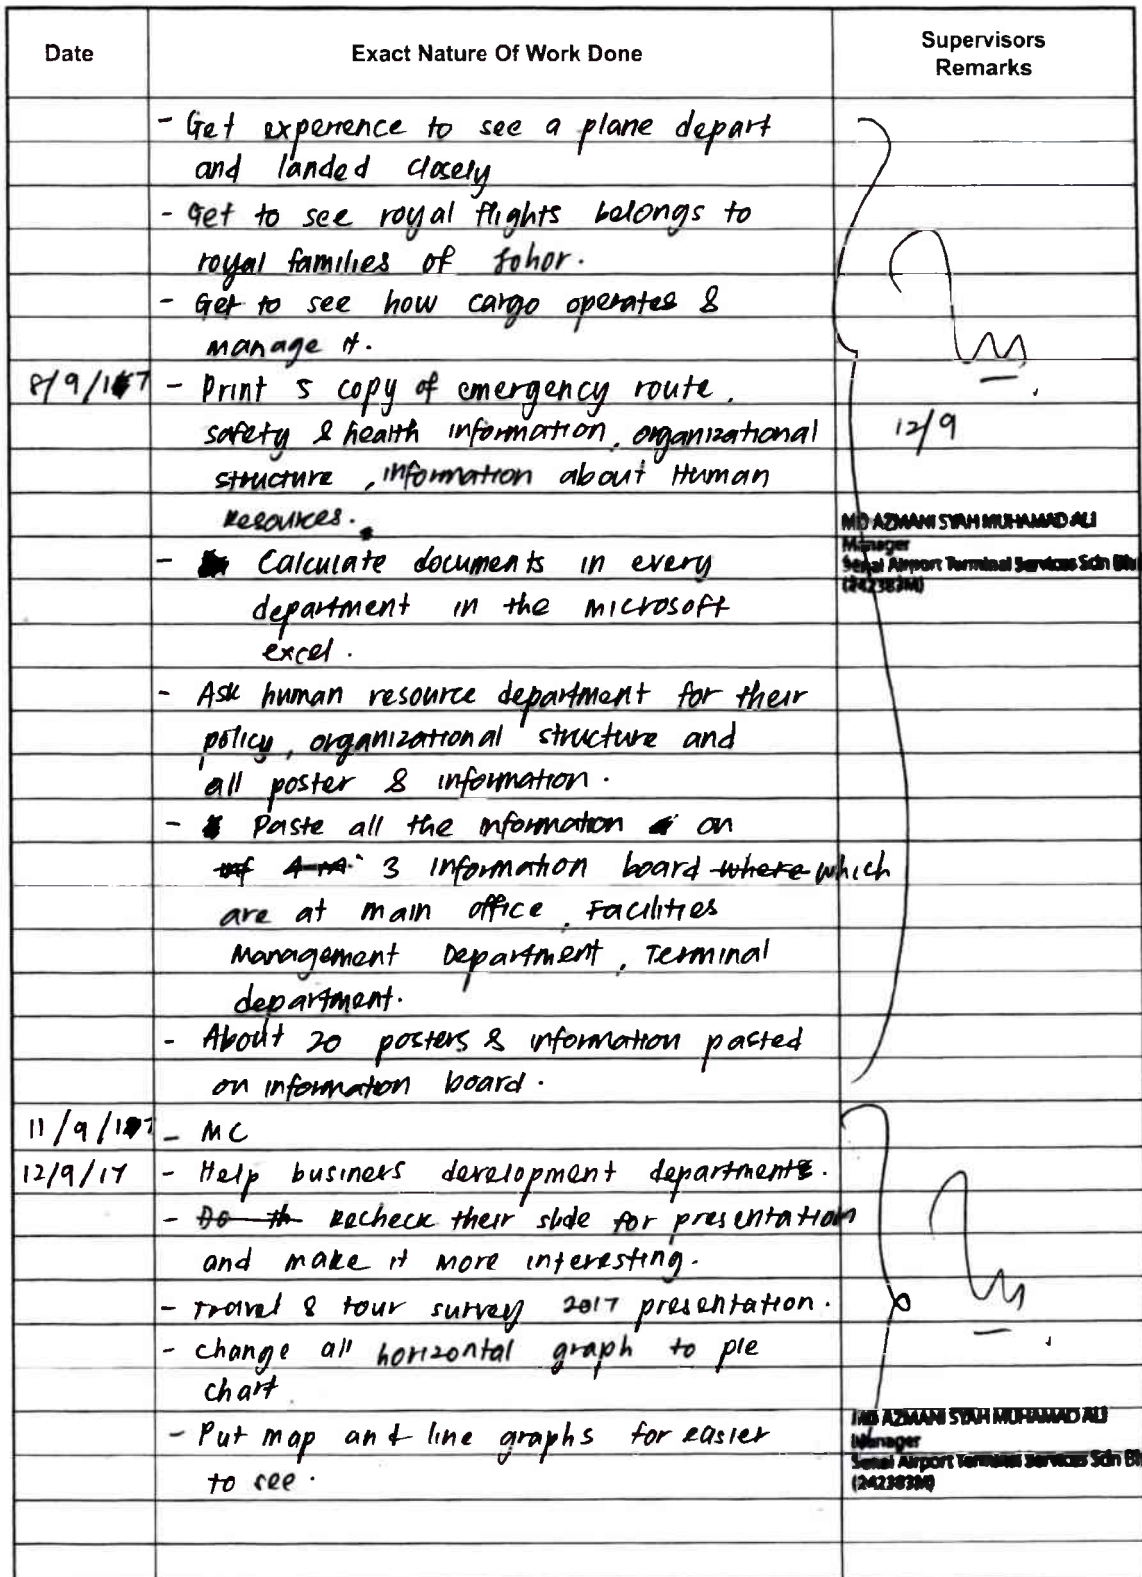 Date Exact Nature Of Work Done Supervisors
Remarks
- Get experience to see a plane depart
and landed closely
- Get to see royal flights belongs to
royal families of Johor.
- Get to see how cargo operates &
manage it.
8/9/17 - Print 5 copy of emergency route,
safety & health information, organizational
12/9
structure, information about Human
Resources.
MD AZMANI SYAH MUHAMAD ALI
Manager
Senai Airport Terminal Services Sdn Bhd
(242383M)
- Calculate documents in every
department in the microsoft
excel.
- Ask human resource department for their
policy, organizational structure and
all poster & information.
- Paste all the information on
3 information board where which
are at main office, Facilities
Management Department, Terminal
department.
- About 20 posters & information pasted
on information board.
11/9/17 - MC
12/9/17 - Help business development department.
- Do th Recheck their slide for presentation
and make it more interesting.
- Travel & tour survey 2017 presentation.
- change all horizontal graph to pie
chart
- Put map and line graphs for easier
to see.
MD AZMANI SYAH MUHAMAD ALI
Manager
Senai Airport Terminal Services Sdn Bh
(242383M)